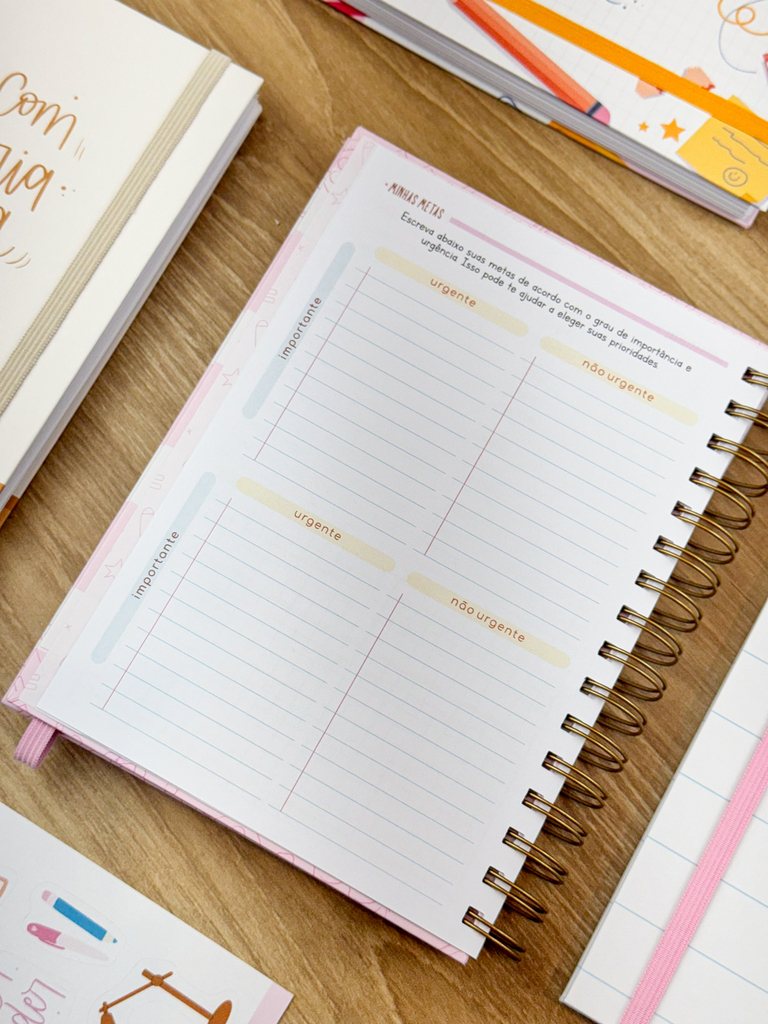 com
MINHAS METAS
Escreva abaixo suas metas de acordo com o grau de importância e
urgência. Isso pode te ajudar a eleger suas prioridades.
urgente
não urgente
importante
urgente
não urgente
importante